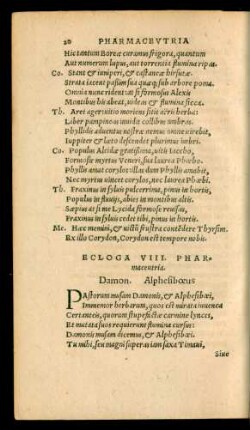 20 PHARMACEVTRIA
Hic tantum Boreæ curamus frigora, quantum
Aut numerum lupus, aut torrentia flumina ripas.
Co. Stant & iuniperi, & castaneæ hirsutæ.
Strata iacent passim sua quæq; sub arbore poma.
Omnia nunc rident: at si formosus Alexis
Montibus his abeat, uideas & flumina sicca.
Th. Aret ager: uitio moriens sitit aëris herba:
Liber pampineas inuidit collibus umbras.
Phyllidis aduentu nostræ nemus omne uirebit,
Iuppiter & læto descendet plurimus imbri.
Co. Populus Alcidæ gratissima, uitis Iaccho,
Formosæ myrtus Veneri, sua laurea Phœbo.
Phyllis amat corylos: illas dum Phyllis amabit,
Nec myrtus uincet corylos, nec laurea Phœbi.
Th. Fraxinus in syluis pulcerrima, pinus in hortis,
Populus in fluuijs, abies in montibus altis.
Sæpius at si me Lycida formose reuisas,
Fraxinus in syluis cedet tibi, pinus in hortis.
Me. Hæc memini, & uictū frustra contēdere Thyrsim.
Ex illo Corydon, Corydon est tempore nobis.
ECLOGA VIII. PHAR-
maceutria.
Damon. Alphesibœus
PAstorum musam Damonis, & Alphesibœi,
Immemor herbarum, quos est mirata iuuenca
Certanteis, quorum stupefactæ carmine lynces,
Et mutata suos requierunt flumina cursus:
Damonis musam dicemus, & Alphesibœi.
Tu mihi, seu magni superas iam saxa Timaui,
Siue